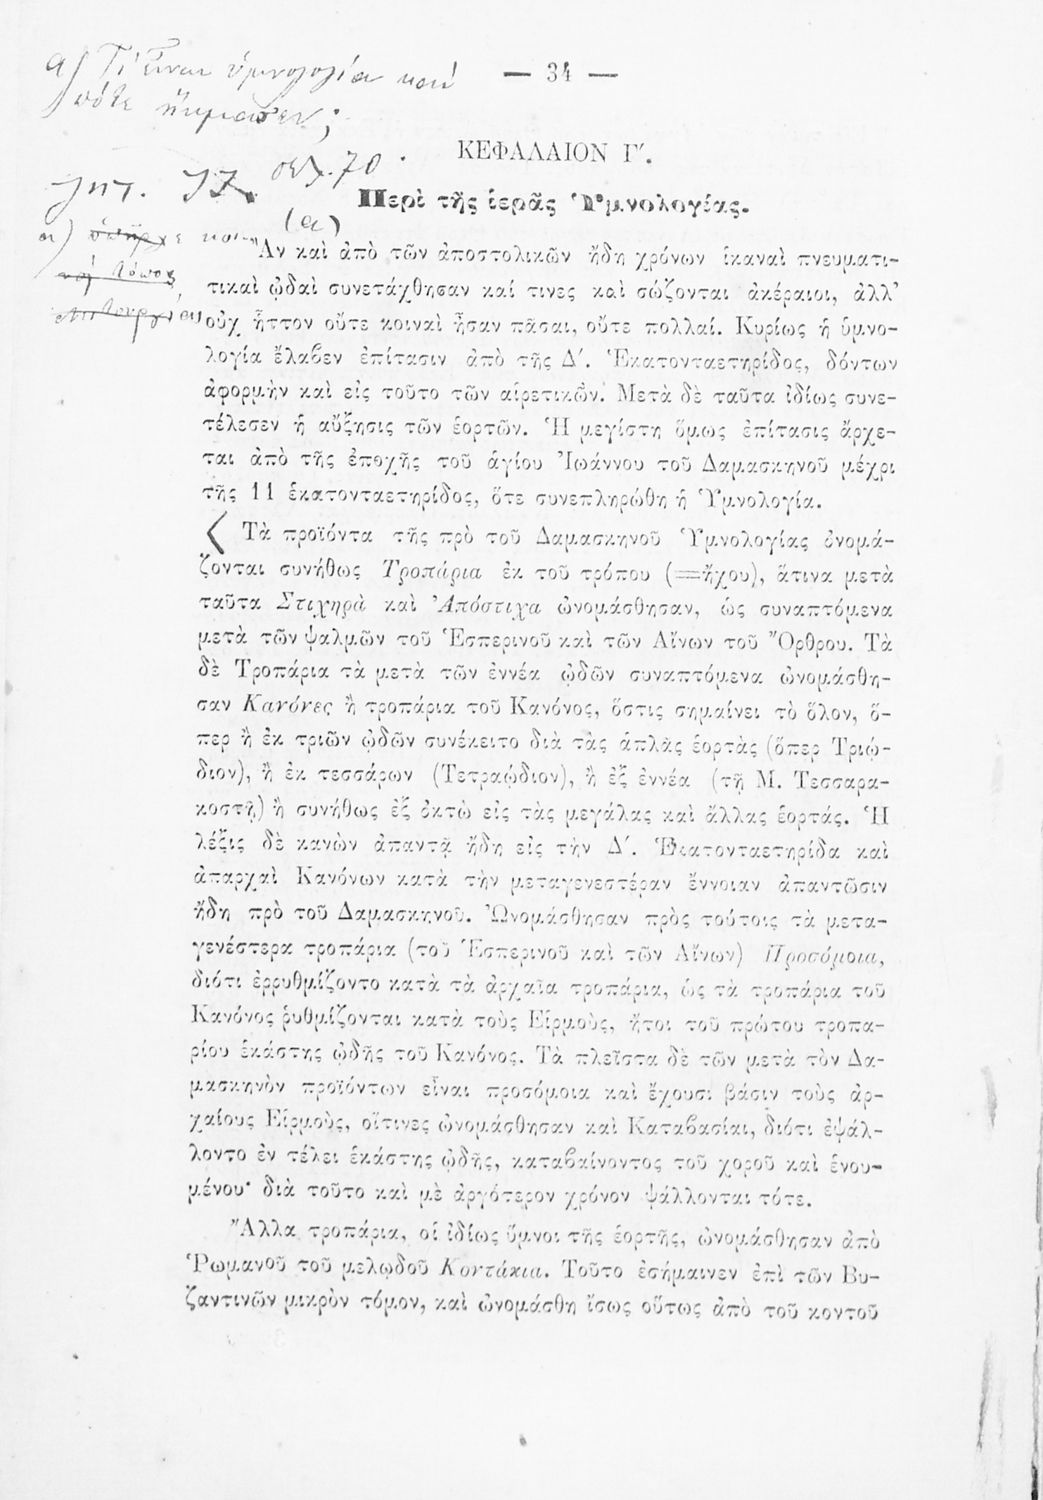 α) Τί εἶναι ὑμνολογία καὶ
πότε ἤκμασεν;
— 34 —
σελ. 70.
ΚΕΦΑΛΑΙΟΝ Γʹ.
Περὶ τῆς ἱερᾶς Ὑμνολογίας.
(α)
Ἂν καὶ ἀπὸ τῶν ἀποστολικῶν ἤδη χρόνων ἱκαναὶ πνευματι-
τικαὶ ᾠδαὶ συνετάχθησαν καί τινες καὶ σώζονται ἀκέραιοι, ἀλλ'
οὐχ ἧττον οὔτε κοιναὶ ἦσαν πᾶσαι, οὔτε πολλαί. Κυρίως ἡ ὑμνο-
λογία ἔλαβεν ἐπίτασιν ἀπὸ τῆς Δʹ. Ἑκατονταετηρίδος, δόντων
ἀφορμὴν καὶ εἰς τοῦτο τῶν αἱρετικῶν. Μετὰ δὲ ταῦτα ἰδίως συνε-
τέλεσεν ἡ αὔξησις τῶν ἑορτῶν. Ἡ μεγίστη ὅμως ἐπίτασις ἄρχε-
ται ἀπὸ τῆς ἐποχῆς τοῦ ἁγίου Ἰωάννου τοῦ Δαμασκηνοῦ μέχρι
τῆς 11 ἑκατονταετηρίδος, ὅτε συνεπληρώθη ἡ Ὑμνολογία.
Τὰ προϊόντα τῆς πρὸ τοῦ Δαμασκηνοῦ Ὑμνολογίας ὀνομά-
ζονται συνήθως Τροπάρια ἐκ τοῦ τρόπου (=ἤχου), ἅτινα μετὰ
ταῦτα Στιχηρὰ καὶ Ἀπόστιχα ὠνομάσθησαν, ὡς συναπτόμενα
μετὰ τῶν ψαλμῶν τοῦ Ἑσπερινοῦ καὶ τῶν Αἴνων τοῦ Ὄρθρου. Τὰ
δὲ Τροπάρια τὰ μετὰ τῶν ἐννέα ᾠδῶν συναπτόμενα ὠνομάσθη-
σαν Κανόνες ἢ τροπάρια τοῦ Κανόνος, ὅστις σημαίνει τὸ ὅλον, ὅ-
περ ἢ ἐκ τριῶν ᾠδῶν συνέκειτο διὰ τὰς ἁπλᾶς ἑορτὰς (ὅπερ Τριῴ-
διον), ἢ ἐκ τεσσάρων (Τετραῴδιον), ἢ ἐξ ἐννέα (τῇ Μ. Τεσσαρα-
κοστῇ) ἢ συνήθως ἐξ ὀκτὼ εἰς τὰς μεγάλας καὶ ἄλλας ἑορτάς. Ἡ
λέξις δὲ κανὼν ἀπαντᾷ ἤδη εἰς τὴν Δʹ. Ἑκατονταετηρίδα καὶ
ἀπαρχαὶ Κανόνων κατὰ τὴν μεταγενεστέραν ἔννοιαν ἀπαντῶσιν
ἤδη πρὸ τοῦ Δαμασκηνοῦ. Ὠνομάσθησαν πρὸς τούτοις τὰ μετα-
γενέστερα τροπάρια (τοῦ Ἑσπερινοῦ καὶ τῶν Αἴνων) Προσόμοια,
διότι ἐρρυθμίζοντο κατὰ τὰ ἀρχαῖα τροπάρια, ὡς τὰ τροπάρια τοῦ
Κανόνος ῥυθμίζονται κατὰ τοὺς Εἱρμοὺς, ἤτοι τοῦ πρώτου τροπα-
ρίου ἑκάστης ᾠδῆς τοῦ Κανόνος. Τὰ πλεῖστα δὲ τῶν μετὰ τὸν Δα-
μασκηνὸν προϊόντων εἶναι προσόμοια καὶ ἔχουσι βάσιν τοὺς ἀρ-
χαίους Εἱρμοὺς, οἵτινες ὠνομάσθησαν καὶ Καταβασίαι, διότι ἐψάλ-
λοντο ἐν τέλει ἑκάστης ᾠδῆς, καταβαίνοντος τοῦ χοροῦ καὶ ἑνου-
μένου· διὰ τοῦτο καὶ μὲ ἀργότερον χρόνον ψάλλονται τότε.
Ἄλλα τροπάρια, οἱ ἰδίως ὕμνοι τῆς ἑορτῆς, ὠνομάσθησαν ἀπὸ
Ῥωμανοῦ τοῦ μελῳδοῦ Κοντάκια. Τοῦτο ἐσήμαινεν ἐπὶ τῶν Βυ-
ζαντινῶν μικρὸν τόμον, καὶ ὠνομάσθη ἴσως οὕτως ἀπὸ τοῦ κοντοῦ